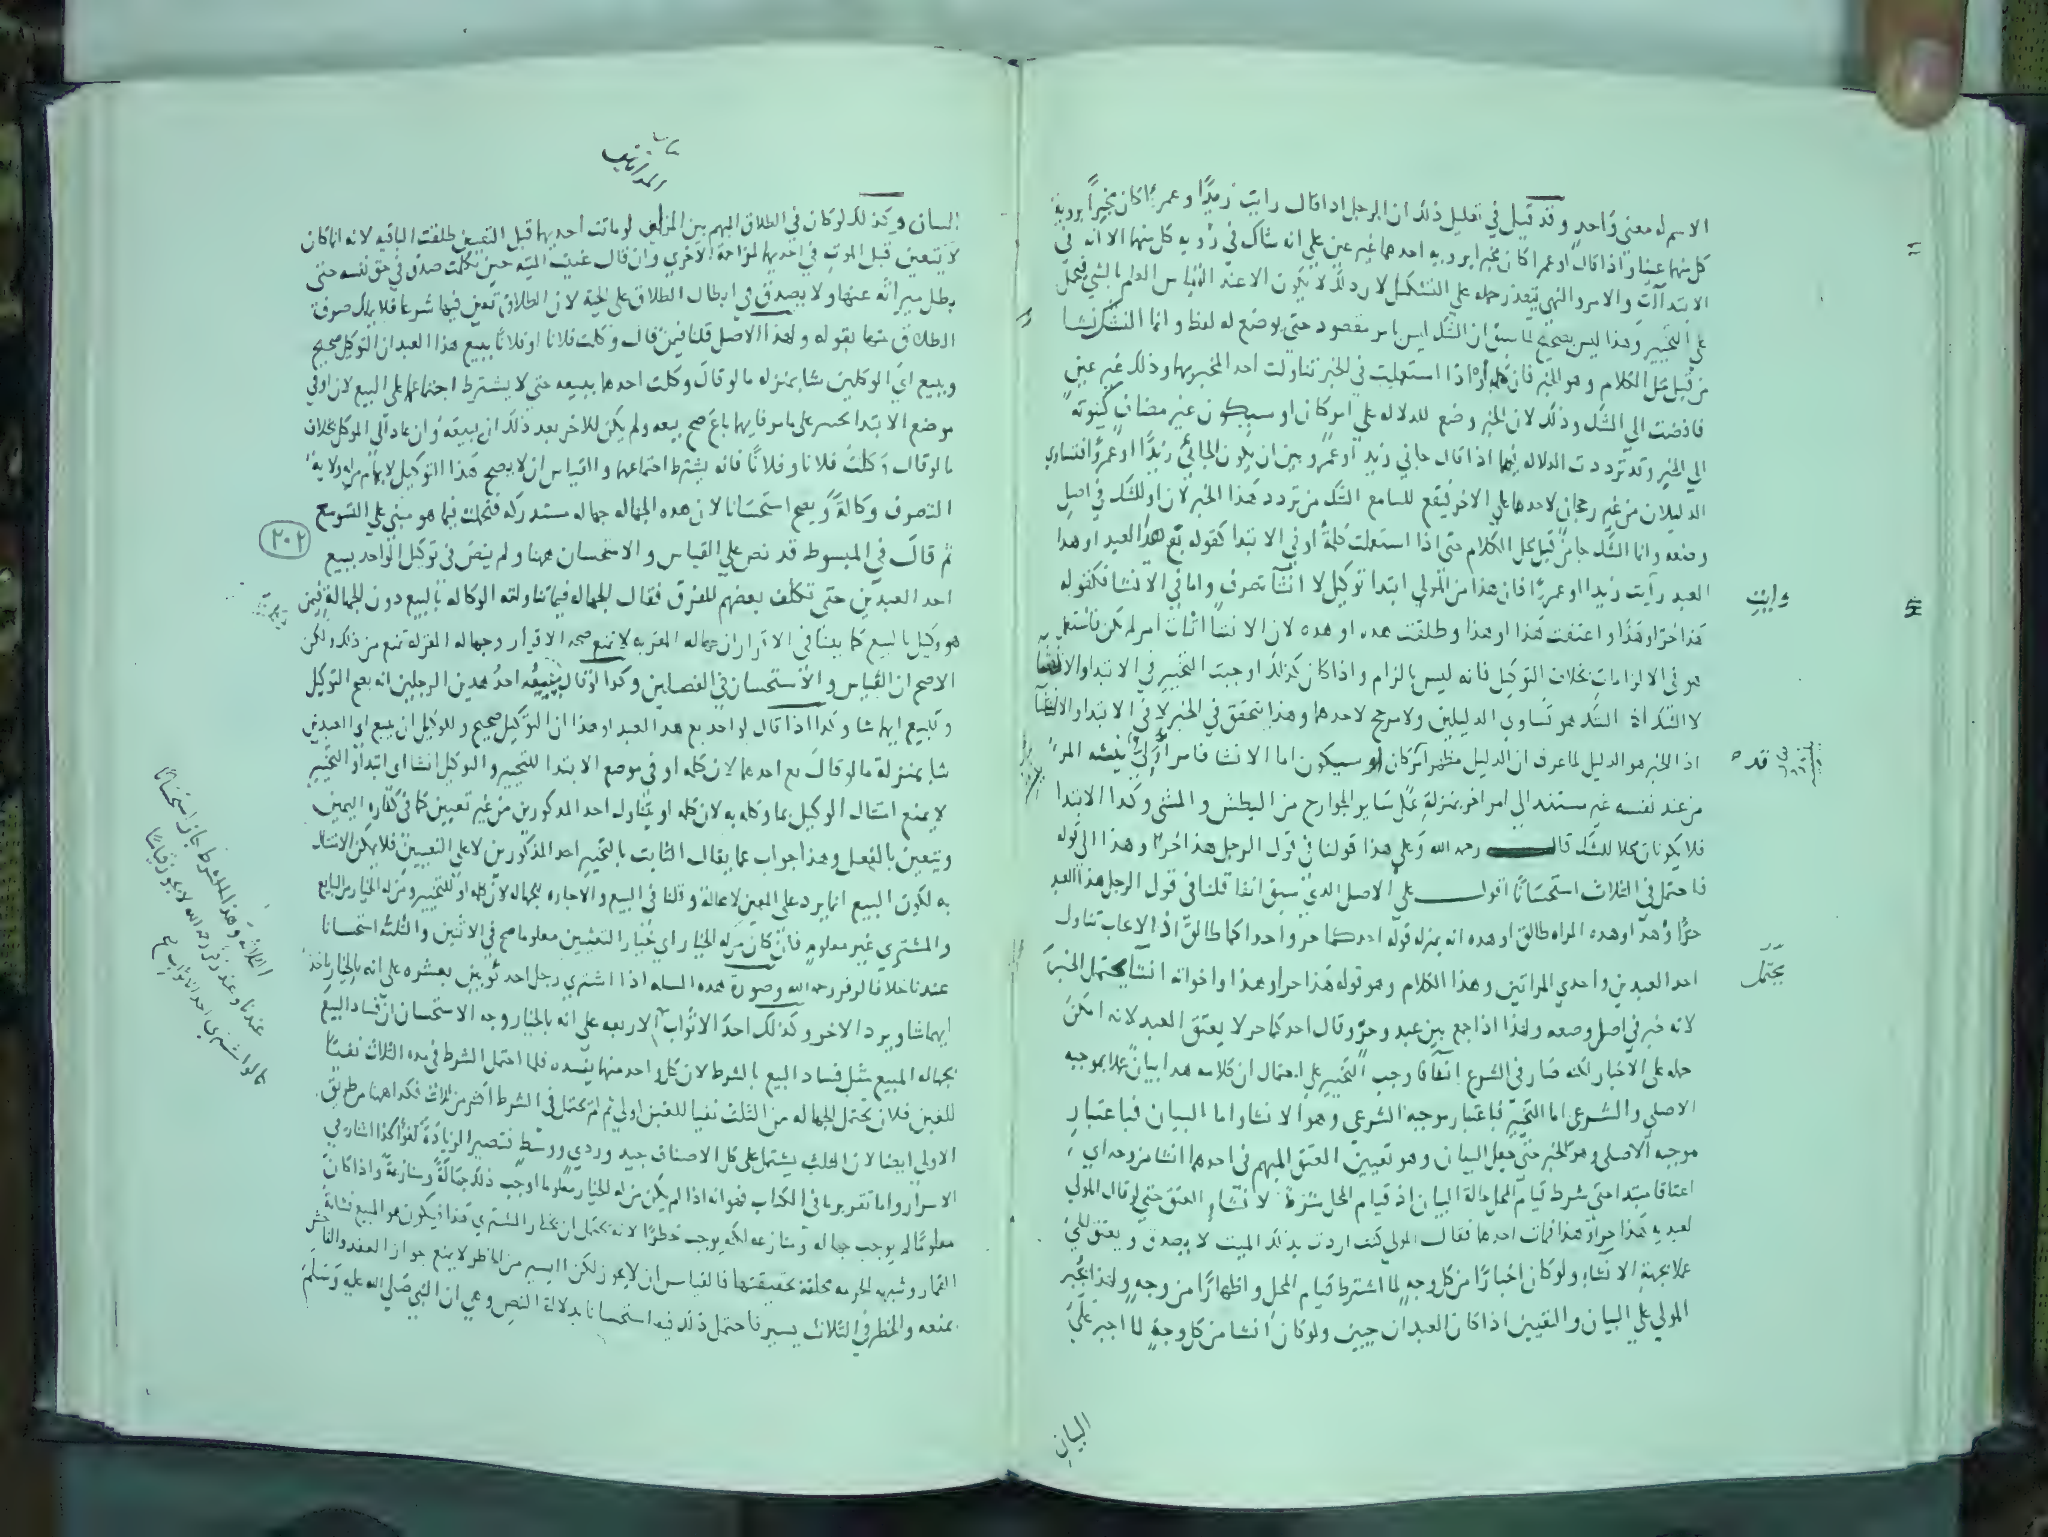 الاسم له معنى واحد وقد قيل في تعليل ذلك ان الرجل اذا قال رايت زيدًا وعمرًا كان مخبرًا بروية
كل منهما عينا واذا قال او عمرا كان مخبرا بروية احدهما غير عين على انه شاك في رؤية كل منهما الا انه في
الابتداآت والامر والنهي يتعذر حمله على التشكيك لان ذلك لا يكون الا عند التباس العلم بالشي فيحمل
على التخيير وهذا ليس بصحيح لما سبق ان الشك ليس بامر مقصود حتى يوضع له لفظ وانما التشكك نشا
من قبل محل الكلام وهو الخبر فان كلمة او اذا استعملت في الخبر تناولت احد المخبر بهما وذلك غير عين
فافضت الى الشك وذلك لان الخبر وضع للدلالة على امر كان او سيكون غير مضاف كينونته
الى الخبر وقد ترددت الدلالة فيما اذا قال جاني زيد او عمرو بين ان يكون الجائي زيدًا او عمرًا فتساوى
الدليلان من غير رجحان لاحدهما على الاخر فيقع للسامع الشك من تردد هذا الخبر لان او للشك في اصل
وضعه وانما الشك جا من قبل محل الكلام حتى اذا استعملت كلمة او في الابتدا كقوله بع هذا العبد او هذا
العبد رأيت زيدا او عمرًا فان هذا من المولى ابتدا توكيل لا انشآ تصرف واما في الانشا فكقوله
هذا حر او هذا واعتقت هذا او هذا وطلقت هذه او هذه لان الانشا اثبات امر لم يكن فاستعمل
هو في الالزامات بخلاف التوكيل فانه ليس بالزام واذا كان كذلك اوجبت التخيير في الابتدا والانشا
لا الشك اذ الشك هو تساوي الدليلين ولا مرجح لاحدهما وهذا يتحقق في الخبر لا في الابتدا والانشآ
اذ الخبر هو الدليل لما عرف ان الدليل مظهر امر كان او سيكون اما الانشا فامر ينشئه المرء
من عند نفسه غير مستند الى امر اخر بمنزلة عمل سائر الجوارح من البطش والمشي وكذا الابتدا
فلا يكونان محلا للشك قال رحمه الله وعلى هذا قولنا في قول الرجل هذا حر او هذا الى قوله
فاحتمل في الثلاث استحسانًا اقول على الاصل الذي سبق انفا قلنا في قول الرجل هذا العبد
حرٌ او هذا او هذه المراه طالق او هذه انه بمنزلة قوله احدكما حر واحداكما طالق اذ الايجاب تناول
احد العبدين واحدى المراتين وهذا الكلام وهو قوله هذا حر او هذا واخواته انشآ يحتمل الخبر
لانه خبر في اصل وضعه ولهذا اذا جمع بين عبد وحر وقال احدكما حر لا يعتق العبد لانه امكن
حمله على الاخبار لكنه صار في الشرع انشآ فاوجب التخيير على احتمال ان كلامه هذا بيان عملا بموجبه
الاصلي والشرعي اما التخيير فباعتبار موجبه الشرعي وهو الانشا واما البيان فباعتبار
موجبه الاصلي وهو الخبر حتى جعل البيان وهو تعيين العتق المبهم في احدهما انشا من وجه اي
اعتاقا مبتدا حتى شرط قيام المحل حالة البيان اذ قيام المحل شرط لانشاء العتق حتى لو قال المولى
لعبديه هذا حر او هذا فمات احدهما فقال المولى كنت اردت بذلك الميت لا يصدق ويعتق الحي
عملا بجهة الانشاء ولو كان اخبارًا من كل وجه لما اشترط قيام المحل واظهارًا من وجه ولهذا يجبر
المولى على البيان والتعيين اذا كان العبدان حيين ولو كان انشا من كل وجه لما اجبر على
وايت
قد
يحتمل
البيان
كتاب
البيان وكذلك لو كان في الطلاق المبهم بين المراتين لو ماتت احديهما قبل التعيين طلقت الباقيه لانه انما كان
لا يتعين قبل الموت في احديهما لمزاحمة الاخرى وان قال عنيت الميته حين تكلمت صدق في حق نفسه حتى
بطل ميراثه عنها ولا يصدق في ابطال الطلاق على الحية لان الطلاق تعين فيها شرعا فلا يملك صرف
الطلاق عنها بقوله ولهذا الاصل قلنا فيمن قال وكلت فلانا او فلانًا ببيع هذا العبد ان التوكيل صحيح
ويبيع اي الوكيلين شا بمنزله ما لو قال وكلت احدهما ببيعه حتى لا يشترط اجتماعهما على البيع لان او في
موضع الابتدا للتخيير على ما مر فايهما باع صح بيعه ولم يكن للاخر بعد ذلك ان يبيعه وان عاد الى الموكل بخلاف
ما لو قال وكلت فلانا وفلانًا فانه يشترط اجتماعهما والقياس ان لا يصح هذا التوكيل لابهام من له ولاية
التصرف وكالةً ويصح استحسانا لان هذه الجهالة جهالة مستدركه فتحملت فيما هو مبني على التوسع
ثم قال في المبسوط قد نص على القياس والاستحسان ههنا ولم ينص في توكيل الواحد ببيع
احد العبدين حتى تكلف بعضهم للفرق فقال الجهالة فيما تناولته الوكالة بالبيع دون الجهالة فيمن
هو وكيل بالبيع كما بينا في الاقرار ان جهالة المقر به لا تمنع صحة الاقرار وجهالة المقر له تمنع من ذلك ولكن
الاصح ان القياس والاستحسان في الفصلين وكذا لو قال يبيعه احد هذين الرجلين انه يصح التوكيل
ويبيع ايهما شا وكذا اذا قال لواحد بع هذا العبد او هذا ان التوكيل صحيح وللوكيل ان يبيع اي العبدين
شا بمنزلة ما لو قال بع احدهما لان كلمة او في موضع الابتدا للتخيير والتوكيل انشا اي ابتدا والتخيير
لا يمنع امتثال الوكيل بما وكله به لان كلمة او يتناول احد المذكورين من غير تعيين كما في كفارة اليمين
ويتعين بالفعل وهذا جواب عما يقال الثابت بالتخيير احد المذكورين لا على التعيين فلا يمكن الامتثال
به لكون البيع انما يرد على المعين لا محالة وقلنا في البيع والاجارة بجهاله لان كلمه او للتخيير ومن له الخيار من البايع
والمشتري غير معلوم فان كان من له الخيار اي خيار التعيين معلوما صح في الاثنين والثلثه استحسانا
عندنا خلافا لزفر رحمه الله وصورة هذه المسله اذا اشترى رجل احد ثوبين بعشره على انه بالخيار ياخذ
ايهما شا ويرد الاخر وكذلك احد الاثواب الاربعه على انه بالخيار وجه الاستحسان ان فساد البيع
بجهاله المبيع مثل فساد البيع بالشرط لان كل واحد منهما يفسده فلما احتمل الشرط في مدة الثلاث نفيًا
للغبن فلان يحتمل الجهالة من الثلث نفيا للغبن اولى ثم لم يحتمل في الشرط اكثر من ثلاث فكذا ههنا من طريق
الاولى ايضا لان الثلث يشتمل على كل الاصناف جيد وردي ووسط فتصير الزيادة لغوًا كذا اشار في
الاسرار واما تقرير ما في الكتاب فهو انه اذا لم يكن من له الخيار معلوما اوجب ذلك جهالةً ومنازعةً واذا كان
معلومًا لم يوجب جهالة ومنازعه لكنه يوجب خطرًا لانه يحتمل ان يختار المشتري هذا فيكون هو المبيع فشابه
القمار وشبهه الحرمه ملحقة بحقيقتها فالقياس ان لا يجوز لكن اليسير من الخطر لا يمنع جواز العقد والفاحش
يمنعه والخطر في الثلاث يسير فاحتمل ذلك فيه استحسانا بدلالة النص وهي ان النبي صلى الله عليه وسلم
٢٠٢
الثلاثة وهذا الشرط جاز استحسانًا
عندنا وعند زفر رحمه الله لا يجوز قياسًا
كما لو اشترى احد اثواب